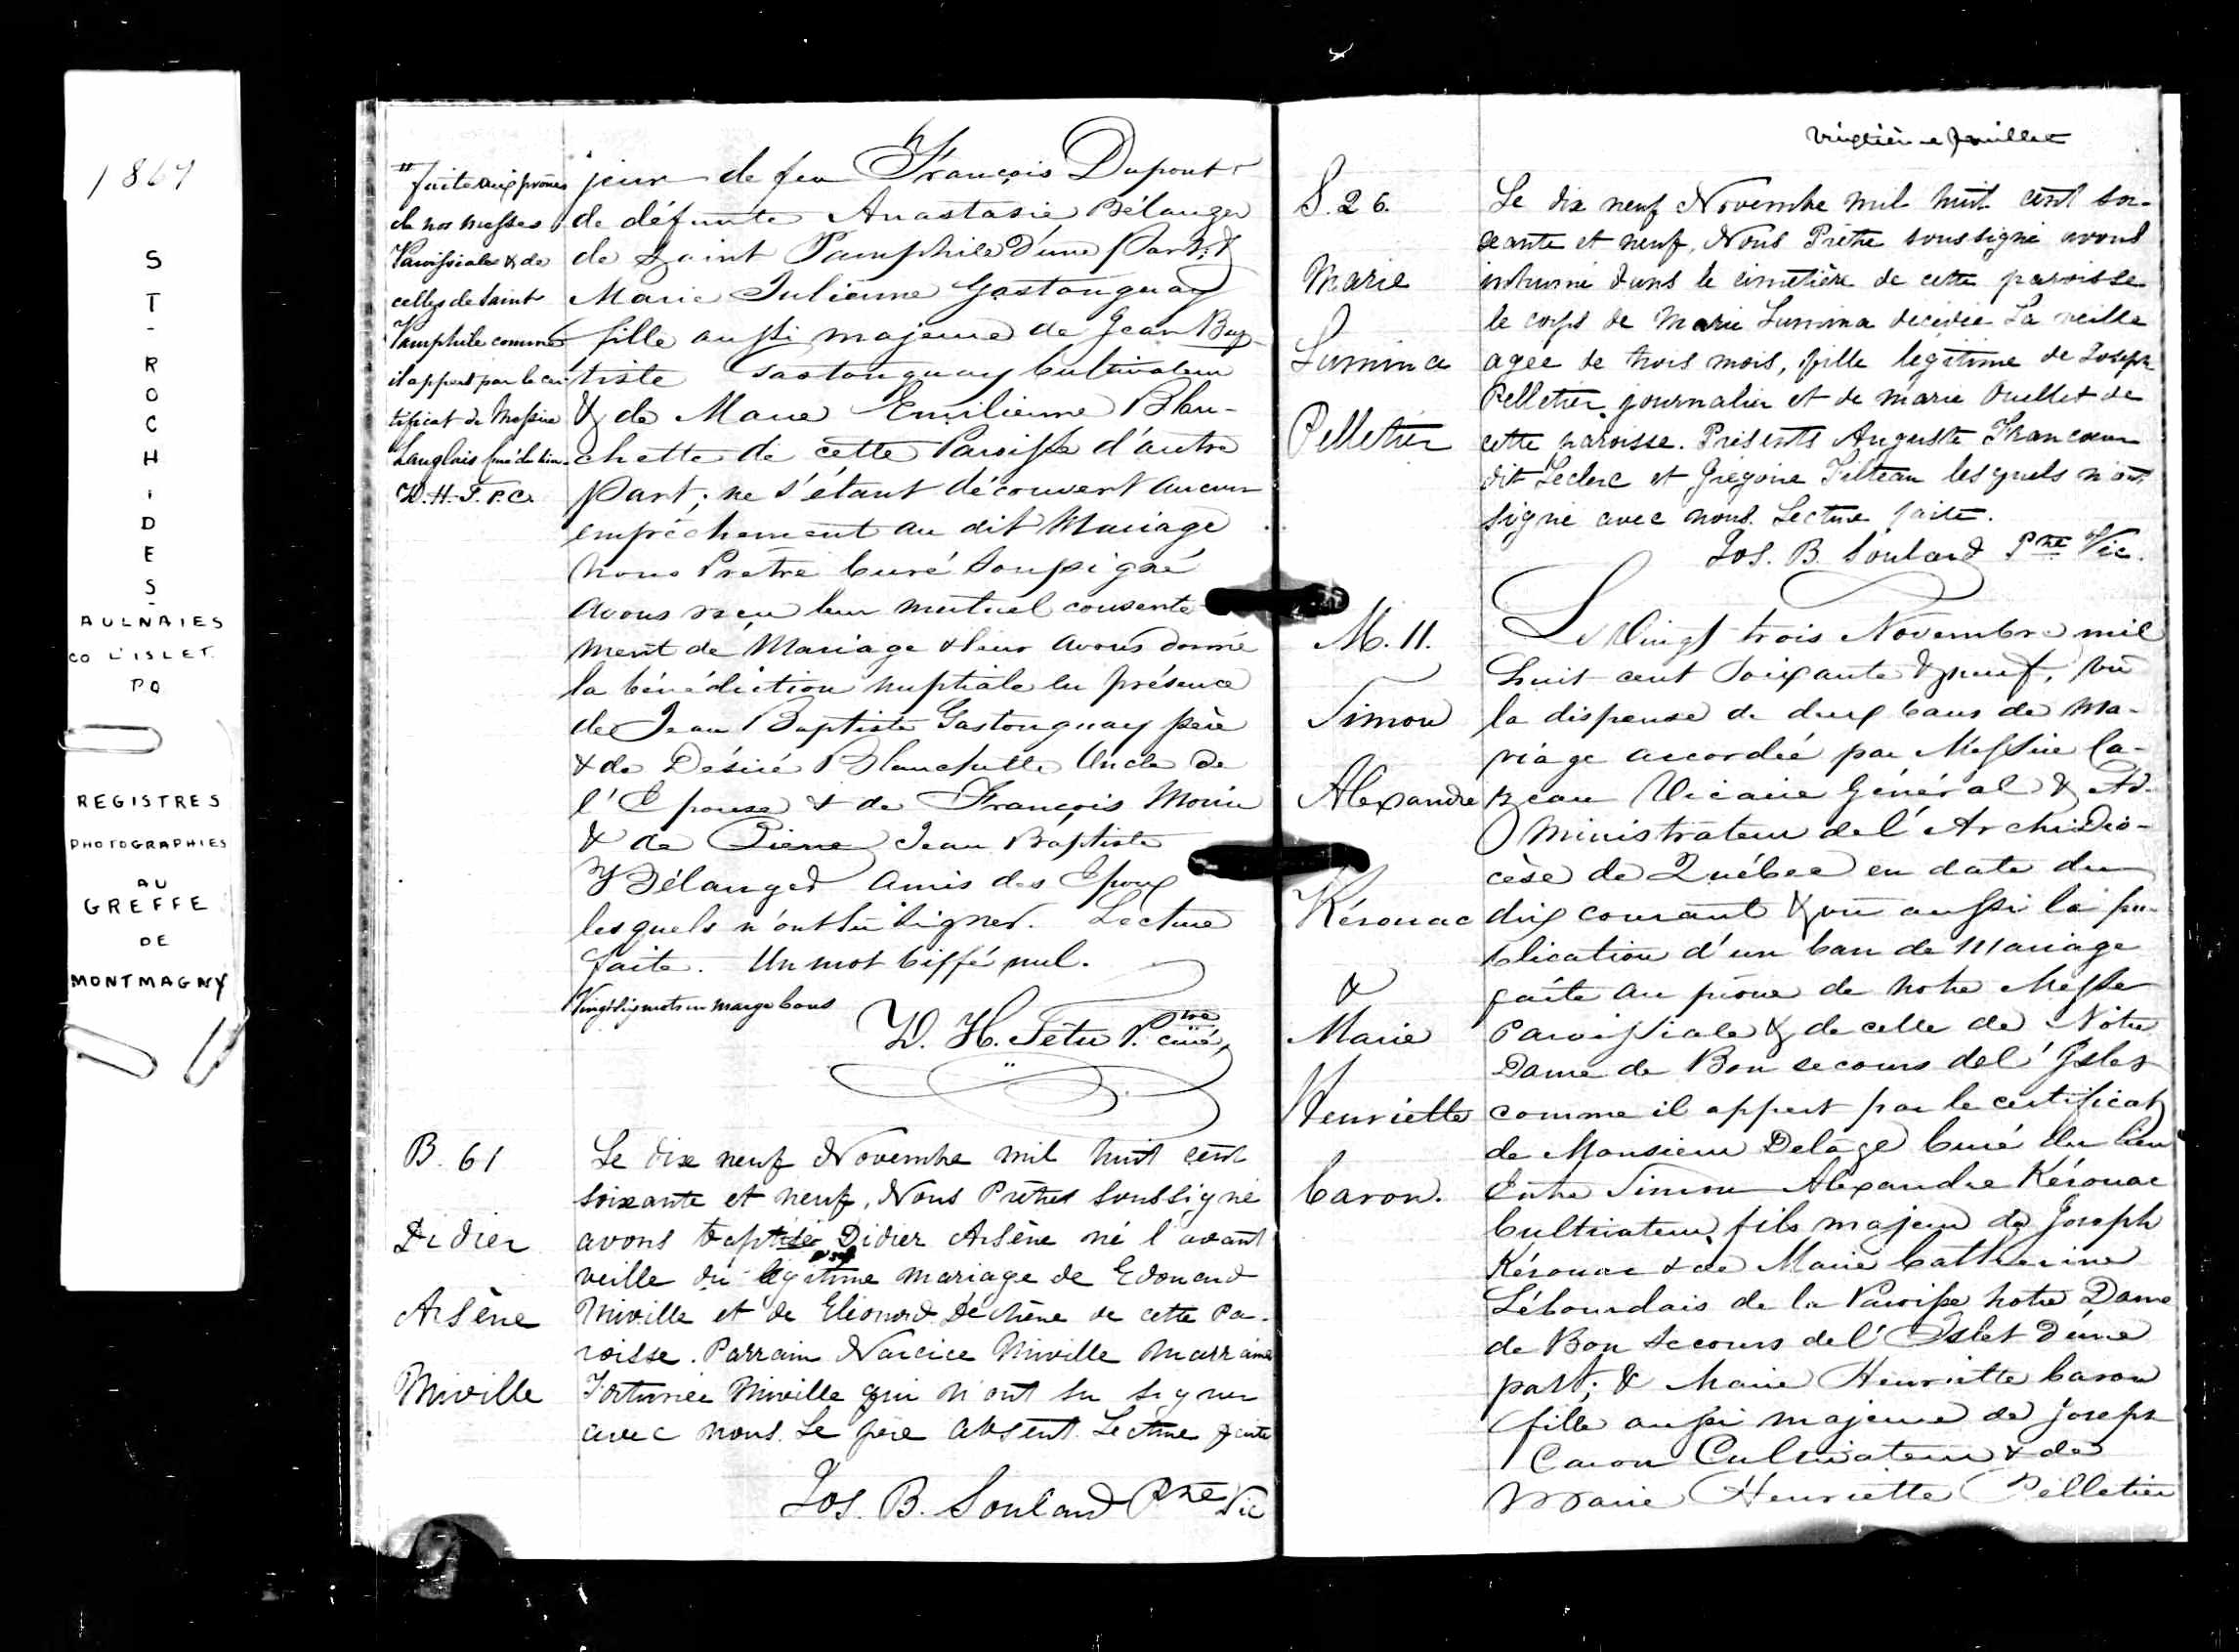 1869
ST-ROCH-DES-
AULNAIES
CO L'ISLET.
PQ
REGISTRES
PHOTOGRAPHIES
AU
GREFFE
DE
MONTMAGNY
"faite aux prônes
de nos messes
Paroissiales & de
celles de Saint
Pamphile comme
il appert par le cer
tificat de Messire
Langlois curé du lieu.
D. H. T. P. C.
jeur de feu François Dupont &
de défunte Anastasie Bélanger
de Saint Pamphile d'une part; &
Marie Julienne Gastonguay
fille aussi majeure de Jean Bap-
tiste Gastonguay Cultivateur
& de Marie Emilienne Blan-
chette de cette Paroisse d'autre
Part; ne s'étant découvert aucun
empêchement au dit Mariage
Nous Prêtre Curé Soussigné
avons reçu leur mutuel consente
ment de Mariage & leur avons donné
la bénédiction nuptiale en présence
de Jean Baptiste Gastonguay père
& de Désiré Blanchette Oncle de
l'Epouse & de François Morin
& de Pierre Jean Baptiste
Bélanger amis des Epoux
lesquels n'ont su signer. Lecture
faite. Un mot biffé nul.
Vingt six mots en marge bons
D. H. Têtu Ptre curé
B. 61
Didier
Arsène
Miville
Le dix neuf Novembre mil huit cent
soixante et neuf, Nous Prêtre soussigné
avons baptisé Didier Arsène né l'avant
veille du légitime mariage de Edouard
Miville et de Eléonord Dechène de cette pa-
roisse. Parrain Narcice Miville Marraine
Fortunée Miville qui n'ont su signer
avec nous. Le père absent. Lecture faite
Jos. B. Soulard Ptre Vic
Vingtième feuillet
S. 26.
Marie
Lumina
Pelletier
Le dix neuf Novembre mil huit cent soi-
xante et neuf, Nous Prêtre soussigné avons
inhumé dans le cimetière de cette paroisse
le corps de Marie Lumina décédée La veille
agée de trois mois, fille légitime de Joseph
Pelletier journalier et de Marie Ouellet de
cette paroisse. Présents Auguste Francoeur
dit Leclerc et Grégoire Filteau lesquels n'ont
signé avec nous. Lecture faite.
Jos. B. Soulard Ptre Vic.
M. 11.
Simon
Alexandre
Kérouac
&
Marie
Henriette
Caron.
Le Vingt trois Novembre mil
huit cent soixante & neuf, vu
la dispense de deux bans de Ma-
riage accordée par Messire Ca-
zeau Vicaire Général & Ad-
ministrateur de l'Archidio-
cèse de Québec en date du
dix courant & vu aussi la pu-
blication d'un ban de Mariage
faite au prône de notre Messe
Paroissiale & de celle de Notre
Dame de Bon secours de l'Islet
comme il appert par le certificat
de Monsieur Delâge Curé du lieu
Entre Simon Alexandre Kérouac
Cultivateur, fils majeur de Joseph
Kérouac & de Marie Catherine
Lébourdais de la Paroisse Notre Dame
de Bon Secours de l'Islet d'une
part; & Marie Henriette Caron
fille aussi majeure de Joseph
Caron Cultivateur & de
Marie Henriette Pelletier